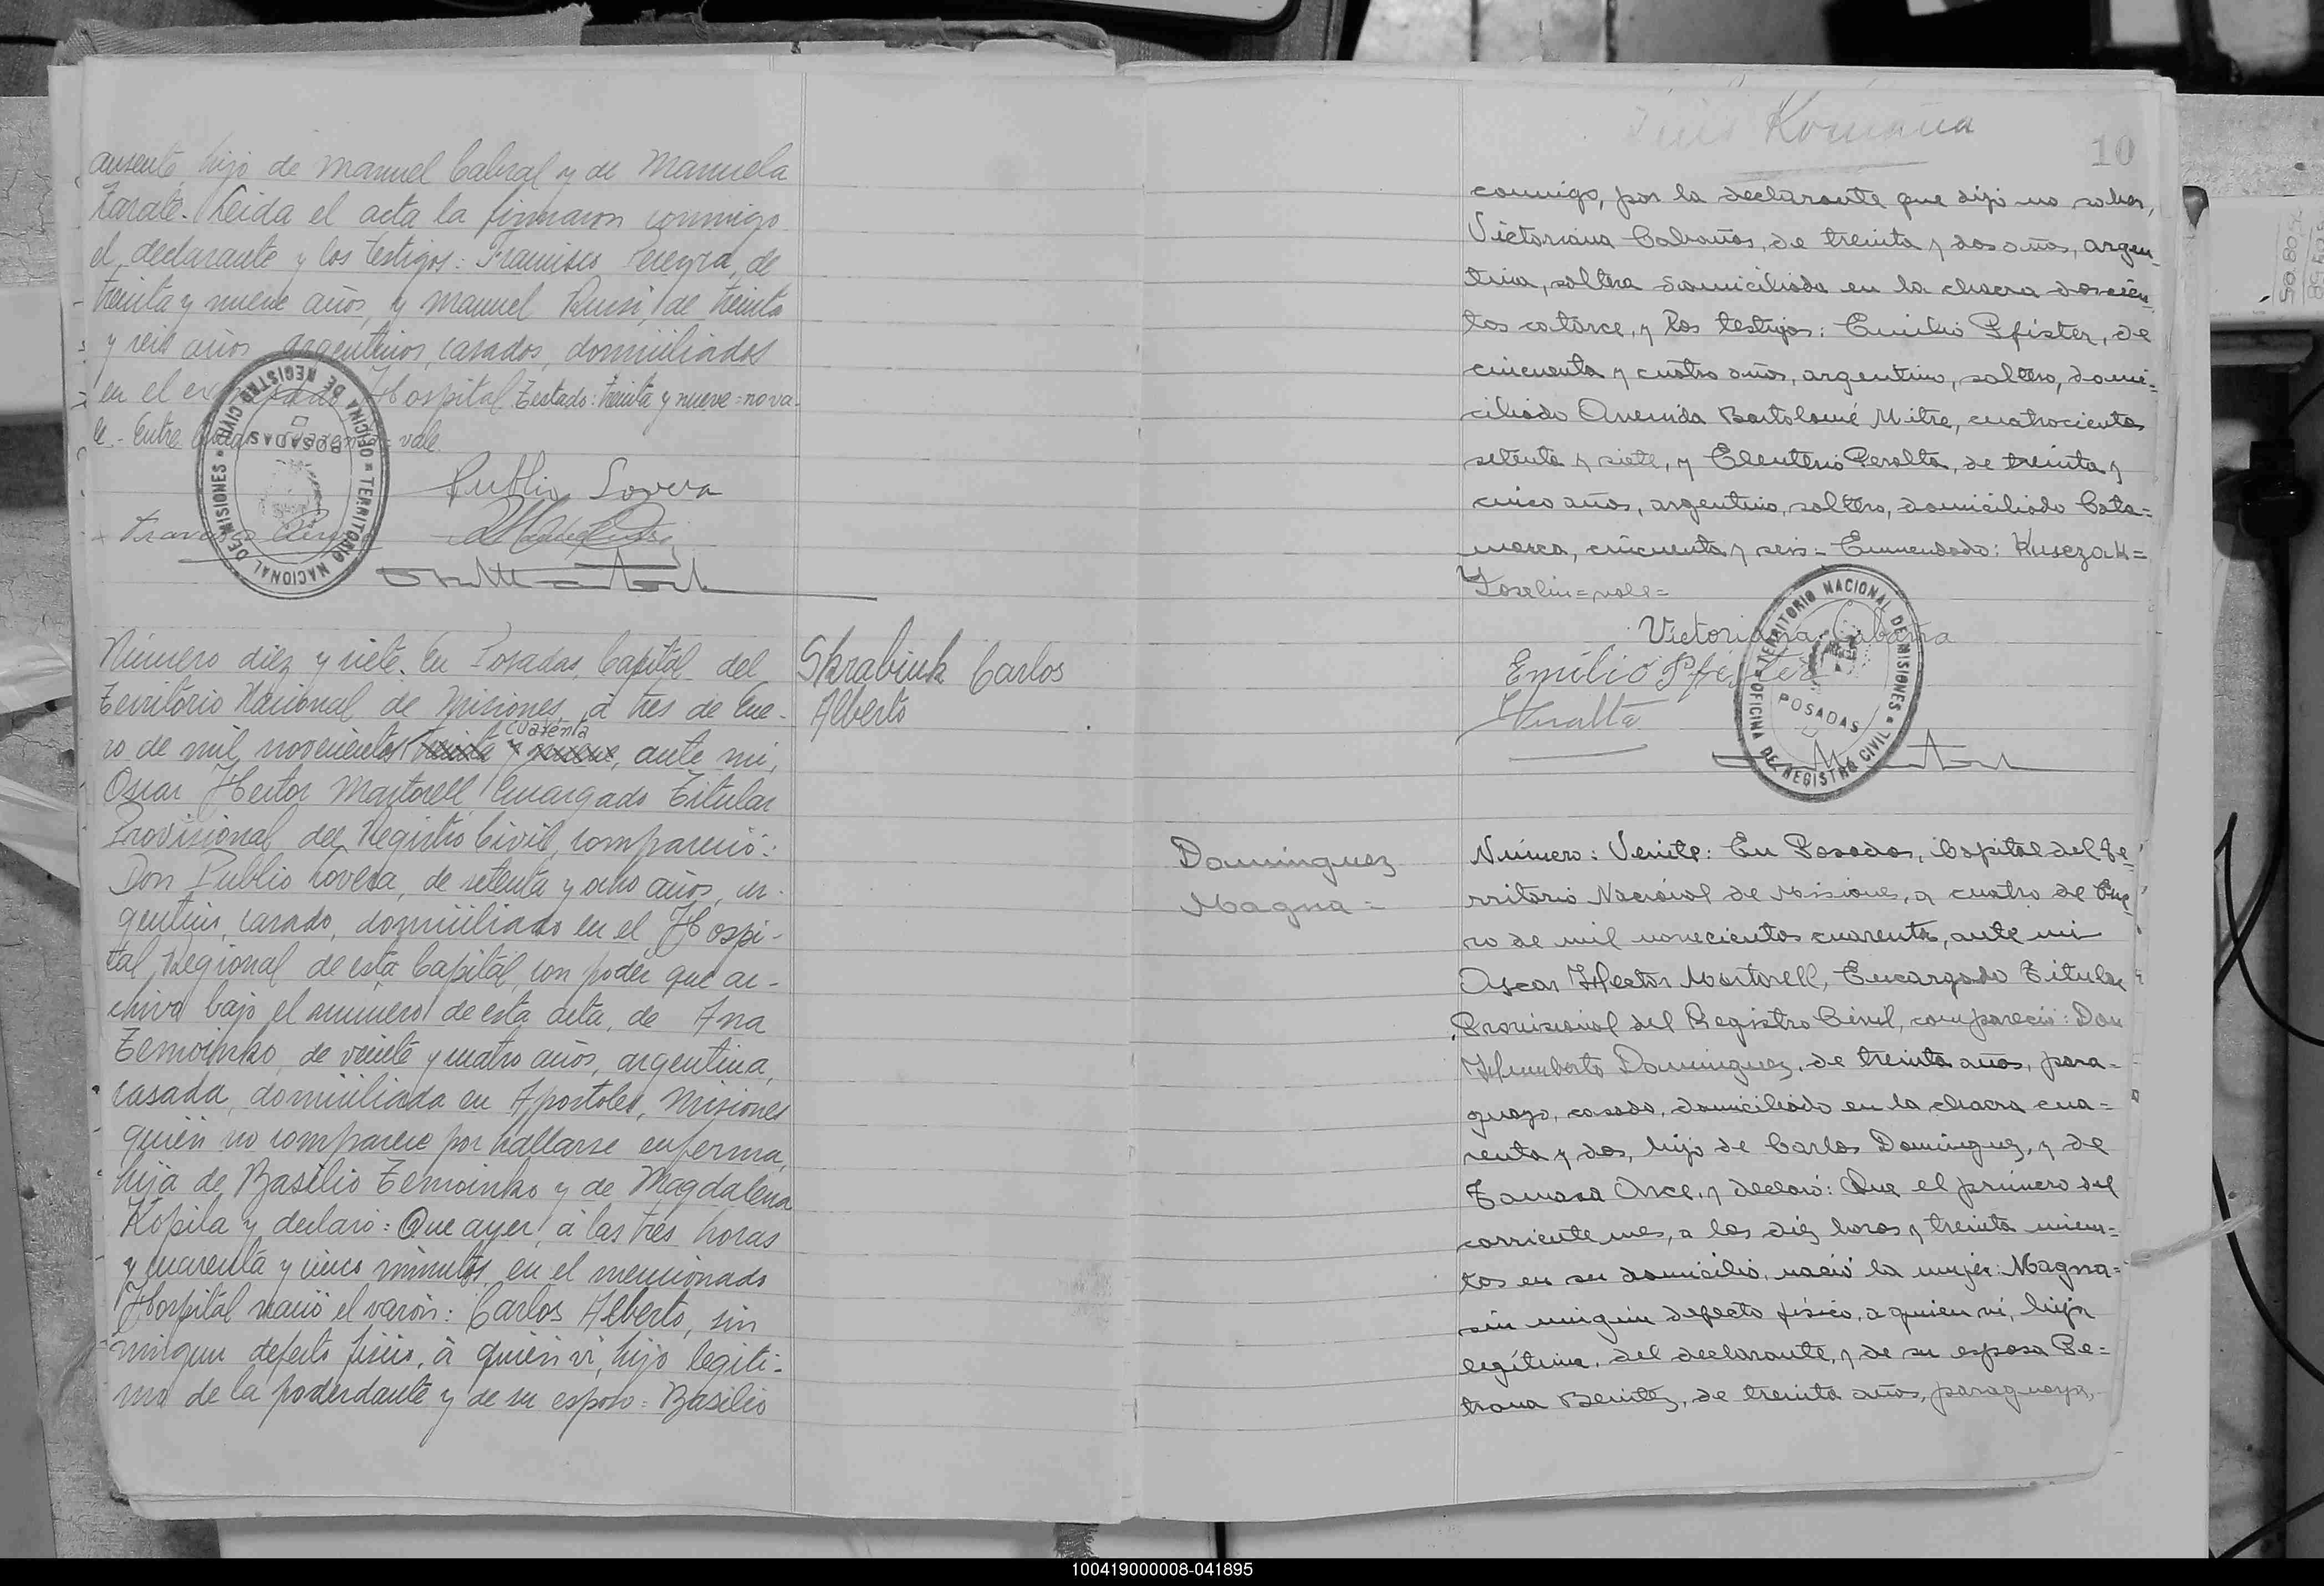 ausente, hijo de Manuel Cabral y de Manuela
Zarate. Leida el acta la firmaron conmigo
el declarante y los testigos: Francisco Pereyra, de
treinta y nueve años, y Manuel Ruisi, de treinta
y seis años argentinos, casados, domiciliados
en el Hospital Testado: treinta y nueve = no va-
le. Entre vale.
Publio Lovera
Número diez y siete. En Posadas, Capital del
Territorio Nacional de Misiones, à tres de Ene-
ro de mil novecientos treinta y nueve, ante mi,
cuarenta
Oscar Hector Martorell Encargado Titular
Provisional del Registro Civil, compareció:
Don Publio Lovera, de setenta y ocho años, ar-
gentino, casado, domiciliado en el Hospi-
tal Regional de esta Capital, con poder que ar-
chivo bajo el numero de esta acta, de Ana
Zemoinko, de veinte y cuatro años, argentina,
casada, domiciliada en Apostoles, Misiones
quién no comparece por hallarse enferma,
hija de Basilio Zemoinko y de Magdalena
Kopila y declaró: Que ayer, à las tres horas
y cuarenta y cinco minutos, en el mencionado
Hospital nació el varón: Carlos Alberto, sin
ningun defecto físico, à quién vi, hijo legiti-
mo de la poderdante y de su esposo = Basilio
Skrabiuk Carlos
Alberto
OFICINA DE REGISTRO CIVIL = TERRITORIO NACIONAL DE MISIONES =
POSADAS
Romaña
10
conmigo, por la declarante que dijo no saber,
Victoriana Cabañas, de treinta y dos años, argen-
tina, soltera domiciliada en la chacra doscien-
tos catorce, y los testigos: Emilio Pfister, de
cincuenta y cuatro años, argentino, soltero, domi-
ciliado Avenida Bartolomé Mitre, cuatrocientos
setenta y siete, y Eleuterio Peralta, de treinta y
cinco años, argentino, soltero, domiciliado Cata=
marca, cincuenta y seis = Enmendado: Kusczak=
Joselin = vale =
Victoriana Cabaña
Emilio Pfister
Peralta
TERRITORIO NACIONAL DE MISIONES = OFICINA DE REGISTRO CIVIL =
POSADAS
Dominguez
Magna =
Número: Veinte: En Posadas, Capital del Te-
rritorio Nacional de Misiones, a cuatro de Ene-
ro de mil novecientos cuarenta, ante mi
Oscar Hector Martorell, Encargado Titular
Provisional del Registro Civil, compareció: Don
Humberto Dominguez, de treinta años, para=
guayo, casado, domiciliado en la chacra cua=
renta y dos, hijo de Carlos Dominguez, y de
Tomasa Arce, y declaró: Que el primero del
corriente mes, a las diez horas y treinta minu=
tos en su domicilio, nació la mujer: Magna=
sin ningún defecto físico, a quien vi, hija
legítima, del declarante, y de su esposa Pe=
trona Benitez, de treinta años, paraguaya,
100419000008-041895